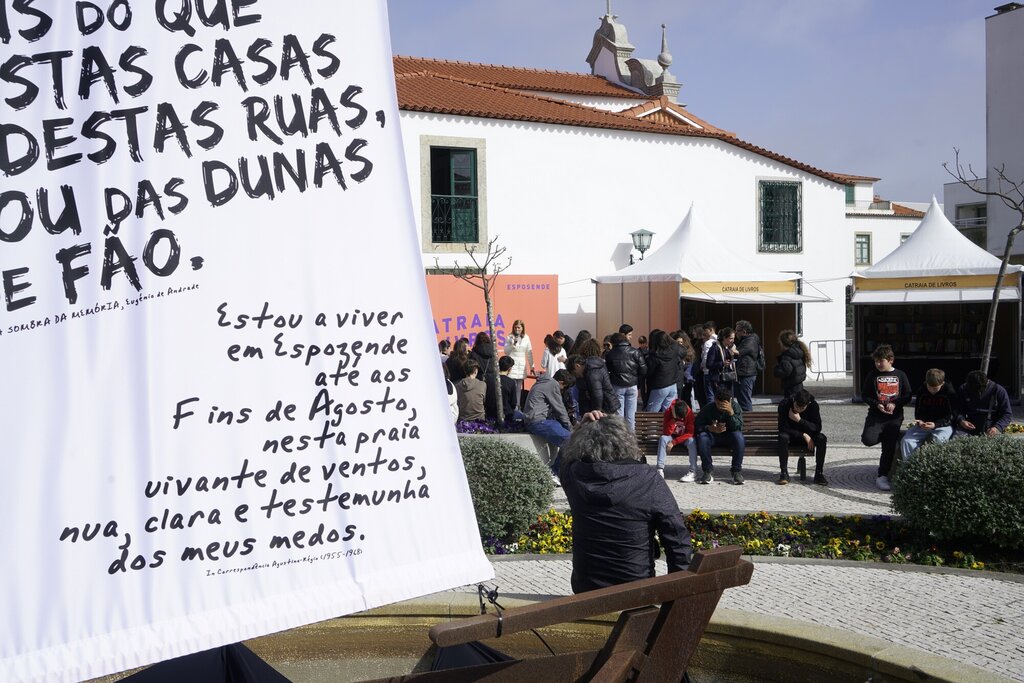 IS DO QUE
STAS CASAS
DESTAS RUAS,
OU DAS DUNAS
E FÃO.
À SOMBRA DA MEMÓRIA, Eugénio de Andrade
Estou a viver
em Espozende
até aos
Fins de Agosto,
nesta praia
vivante de ventos,
nua, clara e testemunha
dos meus medos.
In Correspondência Agustina-Régio (1955-1968)
ESPOSENDE
ATRAIA
CATRAIA DE LIVROS
CATRAIA DE LIVROS